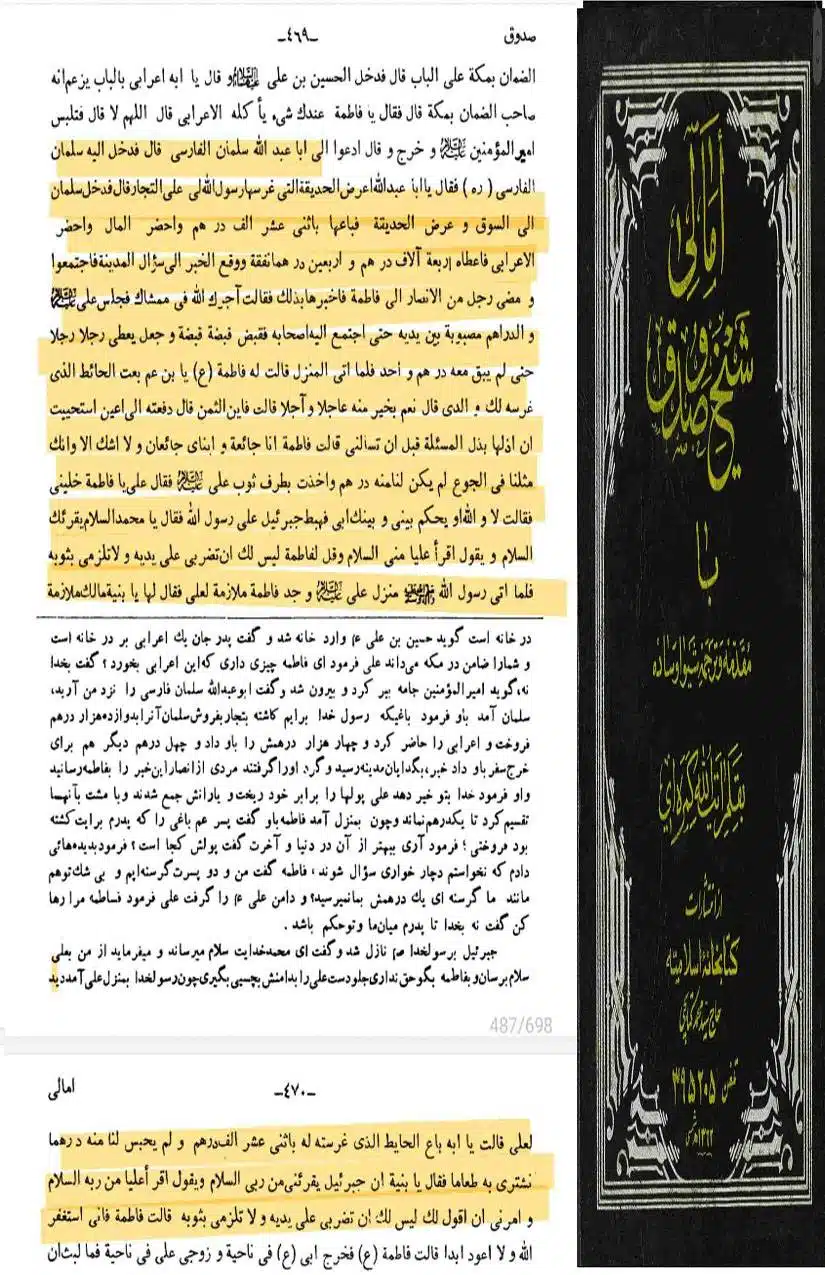 صدوق
-٤٦٩-
الضمان بمكة على الباب قال فدخل الحسين بن على و قال يا ابه اعرابى بالباب يزعم انه
صاحب الضمان بمكة قال فقال يا فاطمة عندك شىء يأكله الاعرابى قال اللهم لا قال فتلبس
امير المؤمنين و خرج و قال ادعوا الى ابا عبد الله سلمان الفارسى قال فدخل اليه سلمان
الفارسى (ره) فقال يا ابا عبدالله اعرض الحديقة التى غرسها رسول الله لى على التجار قال فدخل سلمان
الى السوق و عرض الحديقة فباعها باثنى عشر الف درهم واحضر المال واحضر
الاعرابى فاعطاه اربعة آلاف درهم و اربعين درهما نفقة ووقع الخبر الى سؤال المدينة فاجتمعوا
و مضى رجل من الانصار الى فاطمة فاخبرها بذلك فقالت آجرك الله فى ممشاك فجلس على
و الدراهم مصبوبة بين يديه حتى اجتمع اليه اصحابه فقبض قبضة قبضة و جعل يعطى رجلا رجلا
حتى لم يبق معه درهم و احد فلما اتى المنزل قالت له فاطمة (ع) يا بن عم بعت الحائط الذى
غرسه لك و الدى قال نعم بخير منه عاجلا و آجلا قالت فاين الثمن قال دفعته الى اعين استحييت
ان اذلها بذل المسئلة قبل ان تسالنى قالت فاطمة انا جائعة و ابناى جائعان و لا اشك الا وانك
مثلنا فى الجوع لم يكن لنا منه درهم واخذت بطرف ثوب على فقال على يا فاطمة خلينى
فقالت لا و الله او يحكم بينى و بينك ابى فهبط جبرئيل على رسول الله فقال يا محمد السلام يقرئك
السلام و يقول اقرأ عليا منى السلام وقل لفاطمة ليس لك ان تضربى على يديه و لا تلزمى بثوبه
فلما اتى رسول الله منزل على و جد فاطمة ملازمة لعلى فقال لها يا بنية مالك ملازمة
در خانه است گوید حسین بن علی ع وارد خانه شد و گفت پدر جان یك اعرابی بر در خانه است
و شما را ضامن در مکه می‌داند علی فرمود ای فاطمه چیزی داری که این اعرابی بخورد ؟ گفت بخدا
نه، گوید امیر المؤمنین جامه ببر کرد و بیرون شد و گفت ابوعبدالله سلمان فارسی را نزد من آرید،
سلمان آمد باو فرمود باغیکه رسول خدا برایم کاشته بتجار بفروش سلمان آنرا بدوازده هزار درهم
فروخت و اعرابی را حاضر کرد و چهار هزار درهمش را باو داد و چهل درهم دیگر هم برای
خرج سفر باو داد خبر، بگدایان مدینه رسید و گرد او را گرفتند مردی از انصار این خبر را بفاطمه رسانید
واو فرمود خدا بتو خیر دهد علی پولها را برابر خود ریخت و یارانش جمع شدند و با مشت بآنهـا
تقسیم کرد تا یکدرهم نماند و چون بمنزل آمد فاطمه باو گفت پسر عم باغی را که پدرم برایت کشته
بود فروختی ؛ فرمود آری ببهتر از آن در دنیا و آخرت گفت پولش کجا است ؟ فرمود بدیده‌هائی
دادم که نخواستم دچار خواری سؤال شوند ، فاطمه گفت من و دو پسرت گرسنه‌ایم و بی شك تو هم
مانند ما گرسنه ای یك درهمش بما نمیرسید؟ و دامن علی ع را گرفت علی فرمود فـاطمه مرا رها
کن گفت نه بخدا تا پدرم میان ما و تو حکم باشد .
جبرئیل برسولخدا ص نازل شد و گفت ای محمد خدایت سلام میرساند و میفرماید از من بعلی
سلام برسان و بفاطمه بگو حق نداری جلو دست علی را بدامنش بچسبی بگیری چون رسولخدا بمنزل علی آمد دید
487/698
امالى
-٤٧٠-
لعلى قالت يا ابه باع الحايط الذى غرسته له باثنى عشر الف درهم و لم يحبس لنا منه درهما
نشترى به طعاما فقال يا بنية ان جبرئيل يقرئنى من ربى السلام ويقول اقر أعليا من ربه السلام
و امرنى ان اقول لك ليس لك ان تضربى على يديه و لا تلزمى بثوبه قالت فاطمة فانى استغفر
الله و لا اعود ابدا قالت فاطمة (ع) فخرج ابى (ع) فى ناحية و زوجى على فى ناحية فما لبث ان
أمالی
شیخ صدوق
با
مقدمه و ترجمه شیوا و ساده
بقلم آیت الله کمره‌ای
از انتشارات
کتابخانه اسلامیه
تلفن ۳۹۵۲۰۵